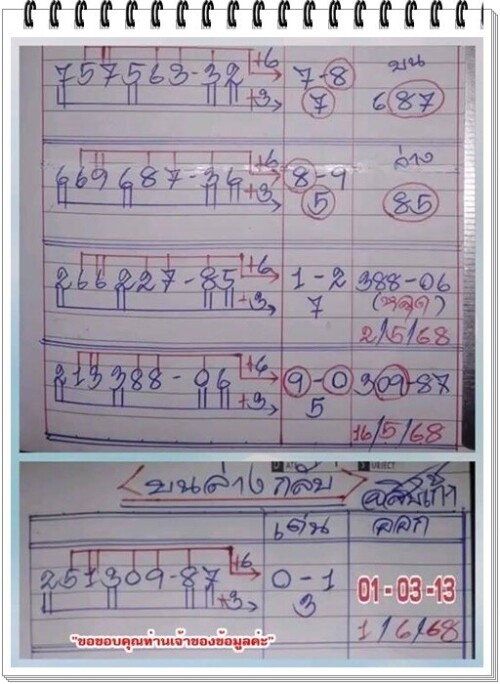 +6
757563-32 7-8 บน
+3 7 687
+6 ล่าง
669687-36 8-9
+3 5 85
+6
266227-85 1-2 388-06
+3 7 (หลุด)
2/5/68
+6
213388-06 9-0 309-87
+3 5
16/5/68
SUBJECT
<บนล่าง กลับ>
เด่น ออก
+6
251309-87 0-1 01-03-13
+3 3
1/6/68
"ขอขอบคุณท่านเจ้าของข้อมูลค่ะ"